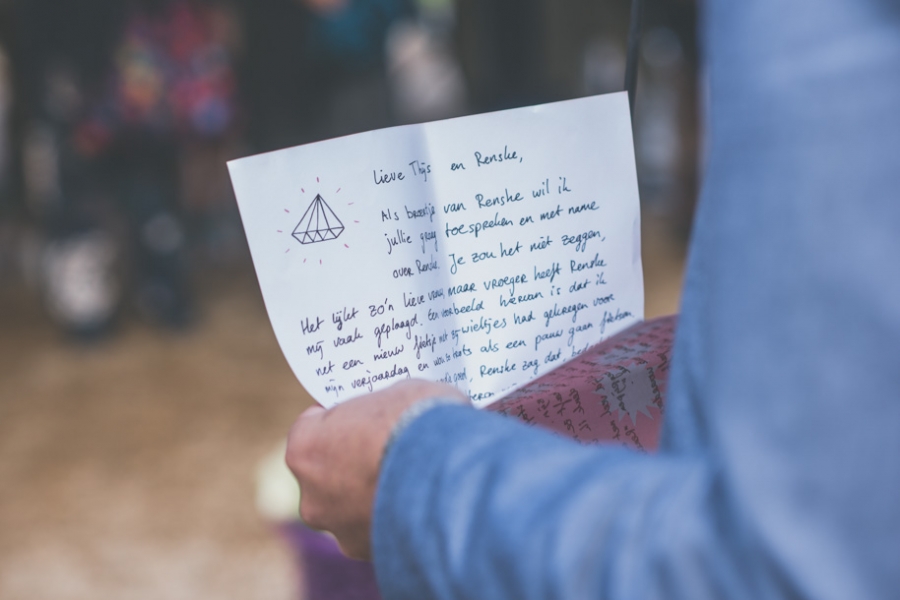 Lieve Thijs en Renske,
Als broertje van Renske wil ik
jullie graag toespreken en met name
over Renske. Je zou het niet zeggen,
Het lijkt zo'n lieve vrouw, maar vroeger heeft Renske
mij vaak geplaagd. Een voorbeeld hiervan is dat ik
net een nieuw fietsje met zijwieltjes had gekregen voor
mijn verjaardag en als een pauw gaan fietsen
Renske zag dat